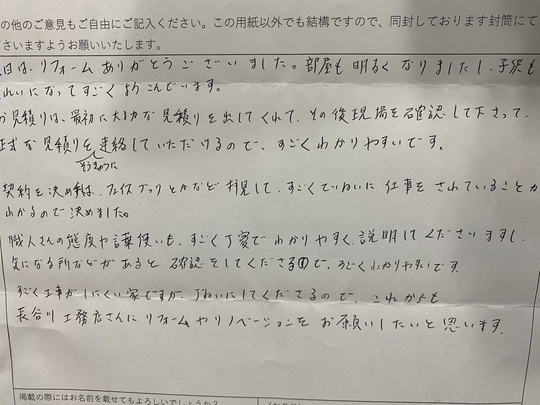 の他のご意見もご自由にご記入ください。この用紙以外でも結構ですので、同封しております封筒にて
さいますようお願いいたします。
日は、リフォームありがとうございました。部屋も明るくなりましたし、子供も
れいになってすごくよろこんでいます。
お見積りは、最初に大まかな見積りを出してくれて、その後現場を確認して下さって、
正式な見積りを連絡していただけるので、すごくわかりやすいです。
契約を決め手は、フェイスブックとかなど拝見して、すごくていねいに仕事をされていることが
わかるので決めました。
職人さんの態度や言葉使いも、すごく丁寧でわかりやすく説明してくださいますし、
気になる所などがあると確認をしてくださるので、すごくわかりやすいです。
すごく工事がしにくい家ですが、ていねいにしてくださるので、これからも
長谷川工務店さんにリフォームやリノベーションをお願いしたいと思います。
掲載の際にはお名前を載せてもよろしいでしょうか?